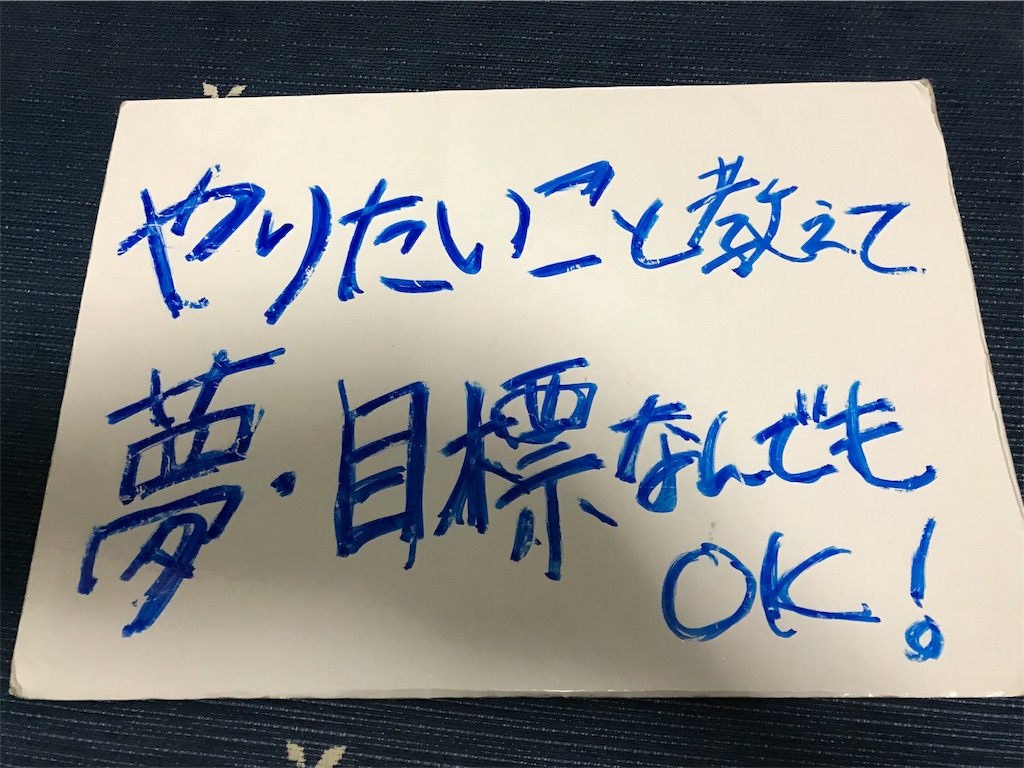 やりたいこと教えて
夢・目標なんでも
OK!